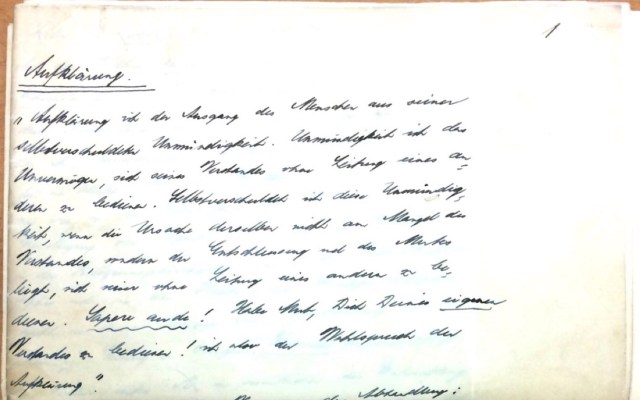 1
Aufklärung.
"Aufklärung ist der Ausgang des Menschen aus seiner
selbstverschuldeten Unmündigkeit. Unmündigkeit ist das
Unvermögen, sich seines Verstandes ohne Leitung eines an-
deren zu bedienen. Selbstverschuldet ist diese Unmündig-
keit, wenn die Ursache derselben nicht am Mangel des
Verstandes, sondern der Entschliessung und des Mutes
liegt, sich seiner ohne Leitung eines andern zu be-
dienen. Sapere aude! Habe Mut, Dich Deines eigenen
Verstandes zu bedienen! ist also der Wahlspruch der
Aufklärung".
der Abhandlung: